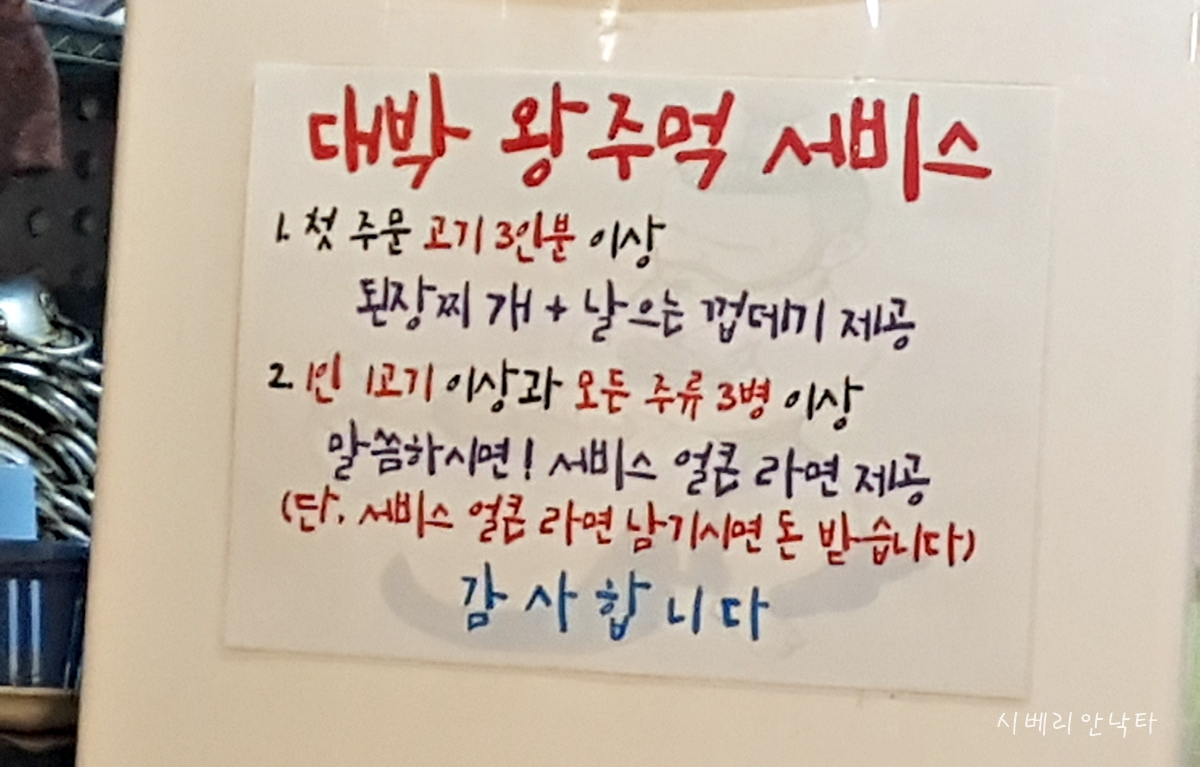 대박 왕주먹 서비스
1. 첫 주문 고기 3인분 이상
된장찌개 + 날으는 껍데기 제공
2. 1인 1고기 이상과 모든 주류 3병 이상
말씀하시면! 서비스 얼큰 라면 제공
(단, 서비스 얼큰 라면 남기시면 돈 받습니다)
감사합니다
시베리안낙타